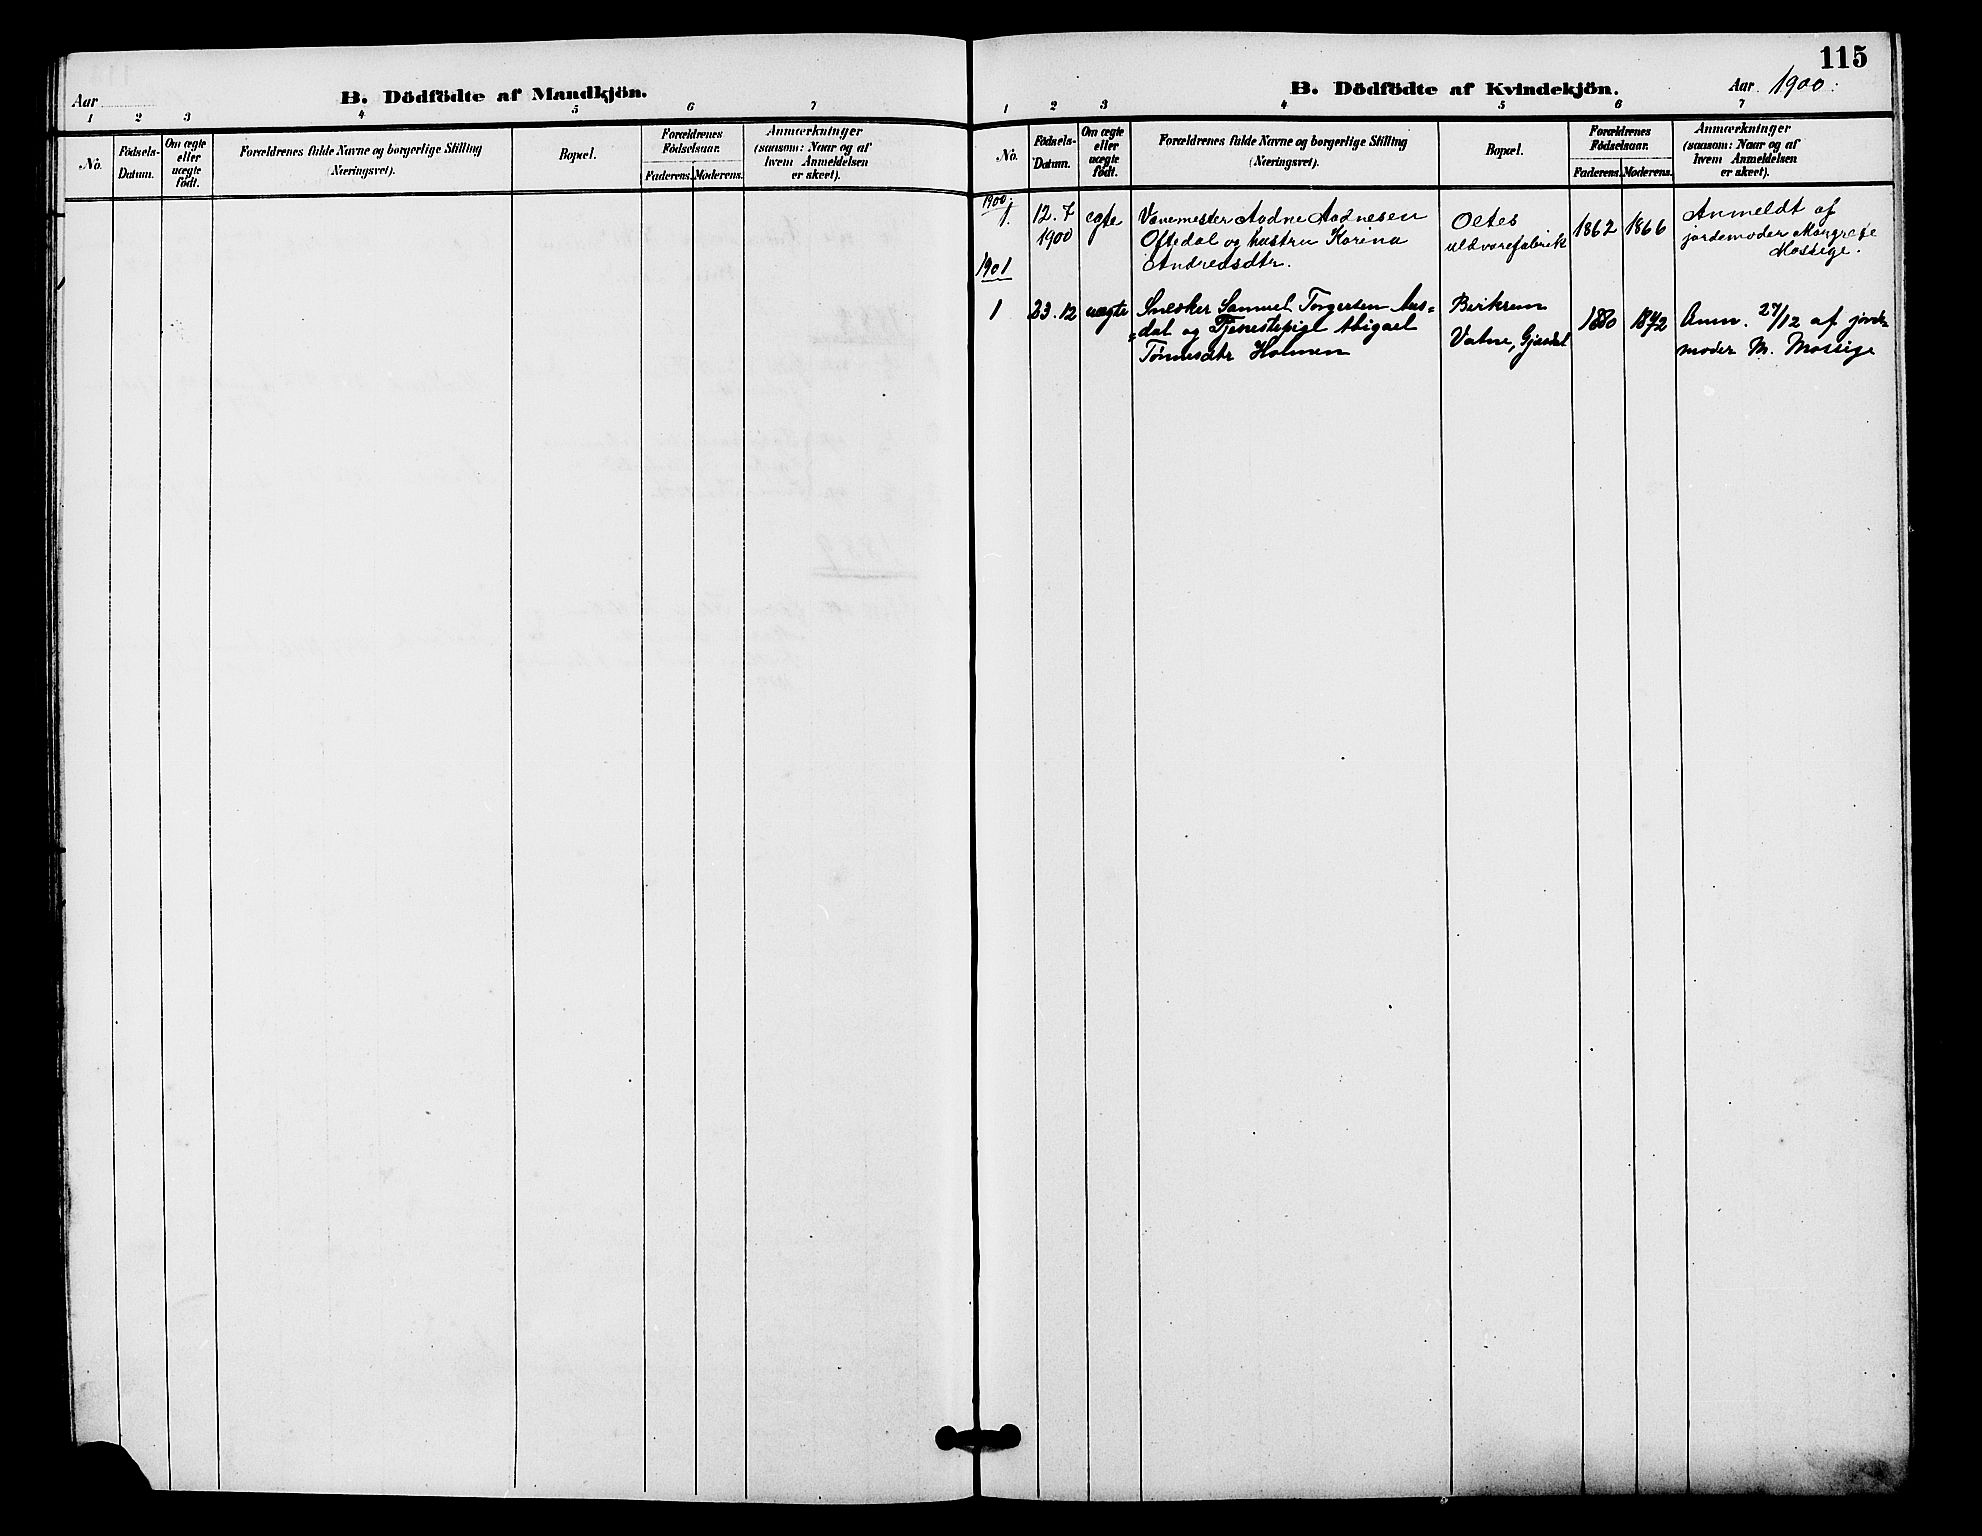 Aar
B. Dödfödte af Mandkjön.
1 2 3 4 5 6 7
No.
Födsels-
Datum.
Om ægte
eller
uægte
födt.
Forældrenes fulde Navne og borgerlige Stilling
(Næringsvei).
Bopæl.
Forældrenes
Födselsaar.
Faderens.
Moderens.
Anmærkninger
(saasom: Naar og af
hvem Anmeldelsen
er skeet).
115
B. Dödfödte af Kvindekjön.
Aar 1900.
1 2 3 4 5 6 7
No.
Födsels-
Datum.
Om ægte
eller
uægte
födt.
Forældrenes fulde Navne og borgerlige Stilling
(Næringsvei).
Bopæl.
Forældrenes
Födselsaar.
Faderens.
Moderens.
Anmærkninger
(saasom: Naar og af
hvem Anmeldelsen
er skeet).
1900.
1.
12. 7
1900
ægte
Aadne Aadnesen
Oftedal og hustru Karina
Andreasdtr.
Oltes
uldvarefabrik
1862
1866
Anmeldt af
jordemoder Margrete
Mossige.
1901
1
23. 12
uægte
Snedker Samuel Torgersen Aas=
=dal og Tjenestepige Abigael
Tønnesdtr Holmen
Birkrem
Vatne, Gjesdal
1880
1872
Anm. 27/12 af jorde-
moder M. Mossige